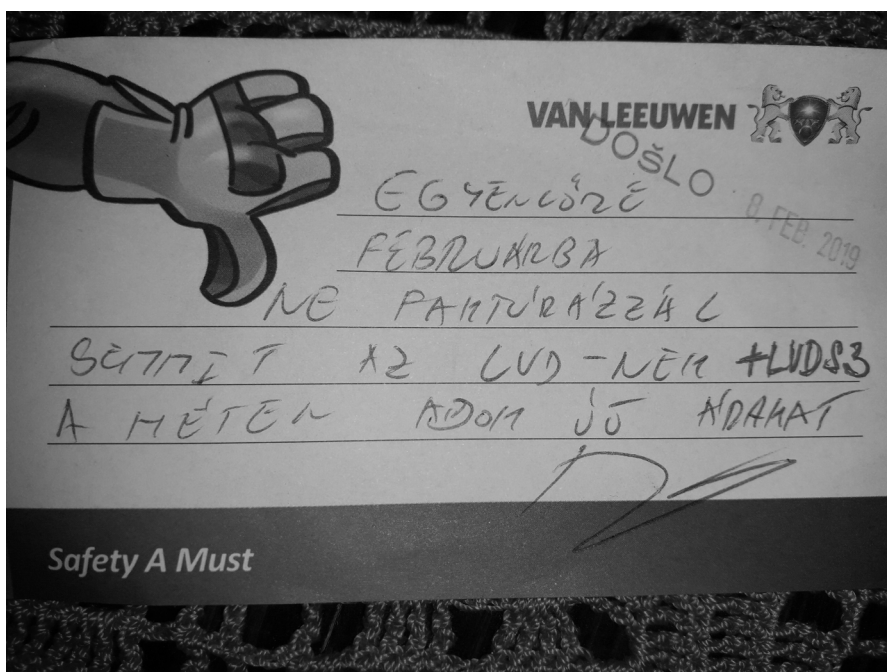 VAN LEEUWEN
DOŠLO
8. FEB. 2019
EGYENLŐRE
FEBRUÁRBA
NE FAKTÚRÁZZÁL
SEMMIT AZ LVD-NEK +LVDS3
A HÉTEN ADOM ÚJ ÁRAKAT
Safety A Must